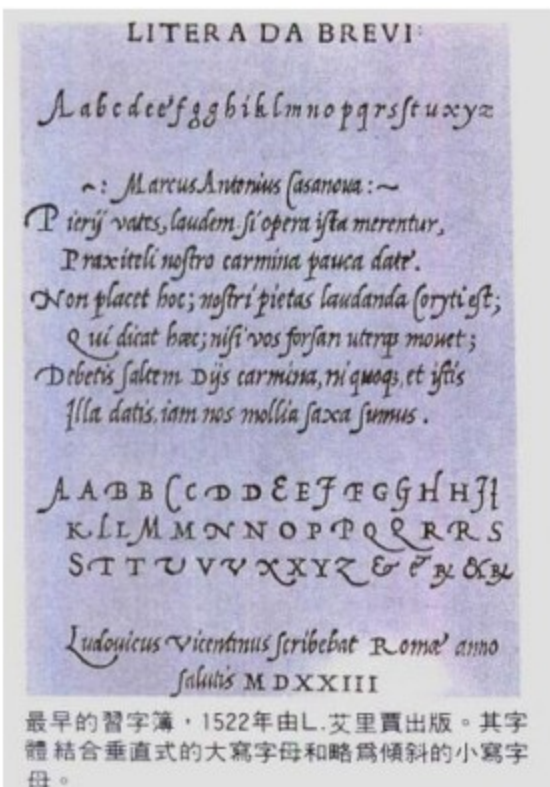 LITERA DA BREVI:
A a b c d e e f g g h i k l m n o p q r s ſ t u x y z
~: Marcus Antonius Casanova :~
Pierij vates, laudem si opera ista merentur,
Praxiteli nostro carmina pauca date.
Non placet hoc; nostri pietas laudanda Coryti est;
Qui dicat hæc; nisi vos forsan uterqꝫ movet;
Debetis saltem Dijs carmina, ni quoqꝫ, et istis
Illa datis, iam nos mollia saxa sumus.
A A B B C C D D E E F F G G H H I I
K L L M M N N O P P Q Q R R S
S T T U V V X X Y Z & &
Ludovicus Vicentinus scribebat Romæ anno
salutis MDXXIII
最早的習字簿，1522年由L.艾里賈出版。其字
體結合垂直式的大寫字母和略爲傾斜的小寫字
母。